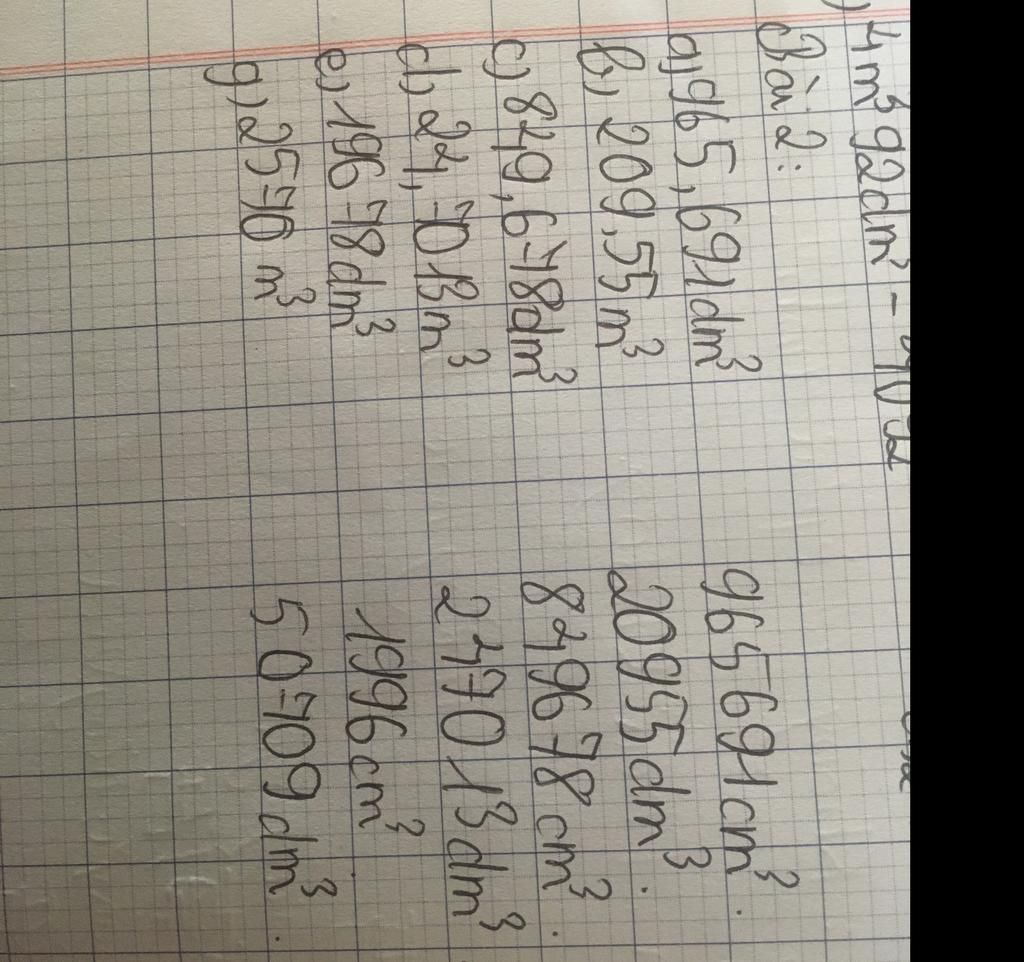 4m³ 92dm³ =
Bài 2:
a, 965,691dm³ 965691cm³.
b, 209,55m³ 20955dm³.
c) 849,678dm³ 849678cm³.
d, 24,7013m³ 2477013dm³
e, 19678dm³ 1996cm³
g, 25576m³ 50709dm³.